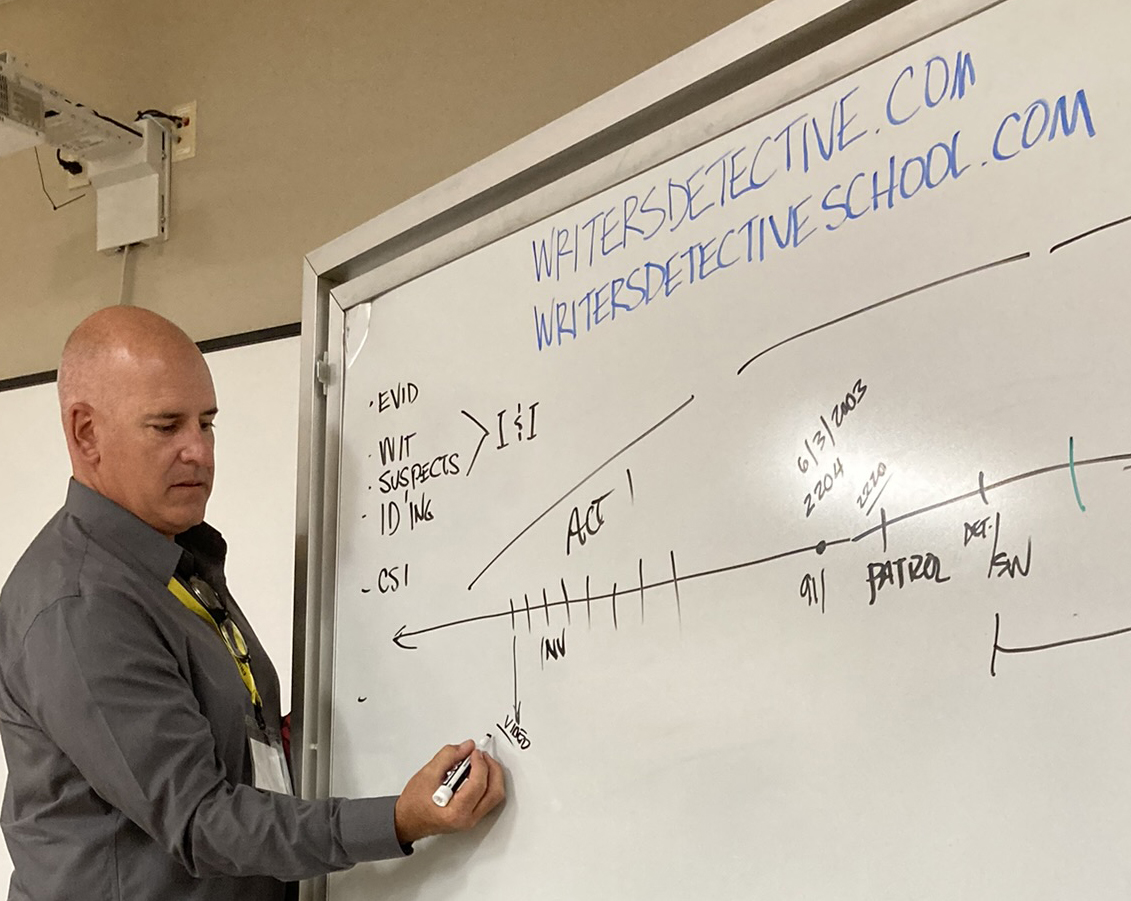 WRITERSDETECTIVE.COM
WRITERSDETECTIVESCHOOL.COM
• EVID
• WIT
• SUSPECTS
- ID'ING
I & I
- CSI
ACT I
6/3/2003
2204
2220
911
PATROL
DET./
SW
INV
VIDEO